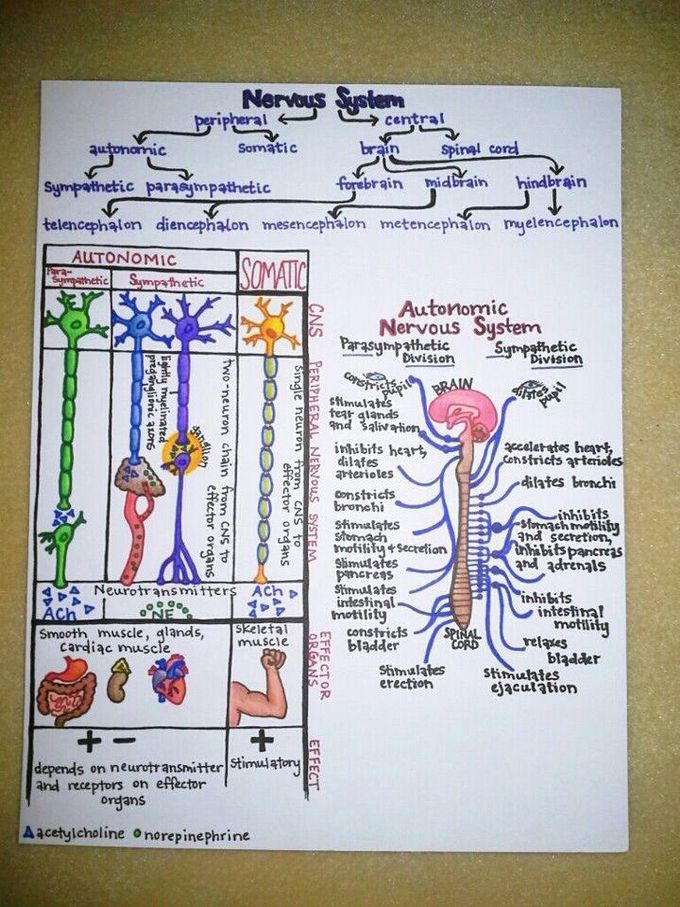 Nervous System
peripheral central
autonomic somatic brain spinal cord
Sympathetic parasympathetic forebrain midbrain hindbrain
telencephalon diencephalon mesencephalon metencephalon myelencephalon
AUTONOMIC
SOMATIC
Para-
Sympathetic
Sympathetic
CNS
PERIPHERAL NERVOUS SYSTEM
lightly myelinated
preganglionic axons
ganglion
two-neuron chain from CNS to
effector organs
single neuron from CNS to
effector organs
Neurotransmitters
ACh
NE
ACh
Smooth muscle, glands,
cardiac muscle
Skeletal
muscle
EFFECTOR
ORGANS
+ -
+
depends on neurotransmitter
and receptors on effector
organs
Stimulatory
EFFECT
acetylcholine norepinephrine
Autonomic
Nervous System
Parasympathetic
Division
Sympathetic
Division
constricts
pupil
BRAIN
dilates
pupil
stimulates
tear glands
and salivation
inhibits heart,
dilates
arterioles
constricts
bronchi
Stimulates
Stomach
motility + secretion
Stimulates
pancreas
Stimulates
intestinal
motility
constricts
bladder
Stimulates
erection
SPINAL
CORD
accelerates heart,
constricts arterioles
dilates bronchi
inhibits
stomach motility
and secretion,
inhibits pancreas
and adrenals
inhibits
intestinal
motility
relaxes
bladder
Stimulates
ejaculation